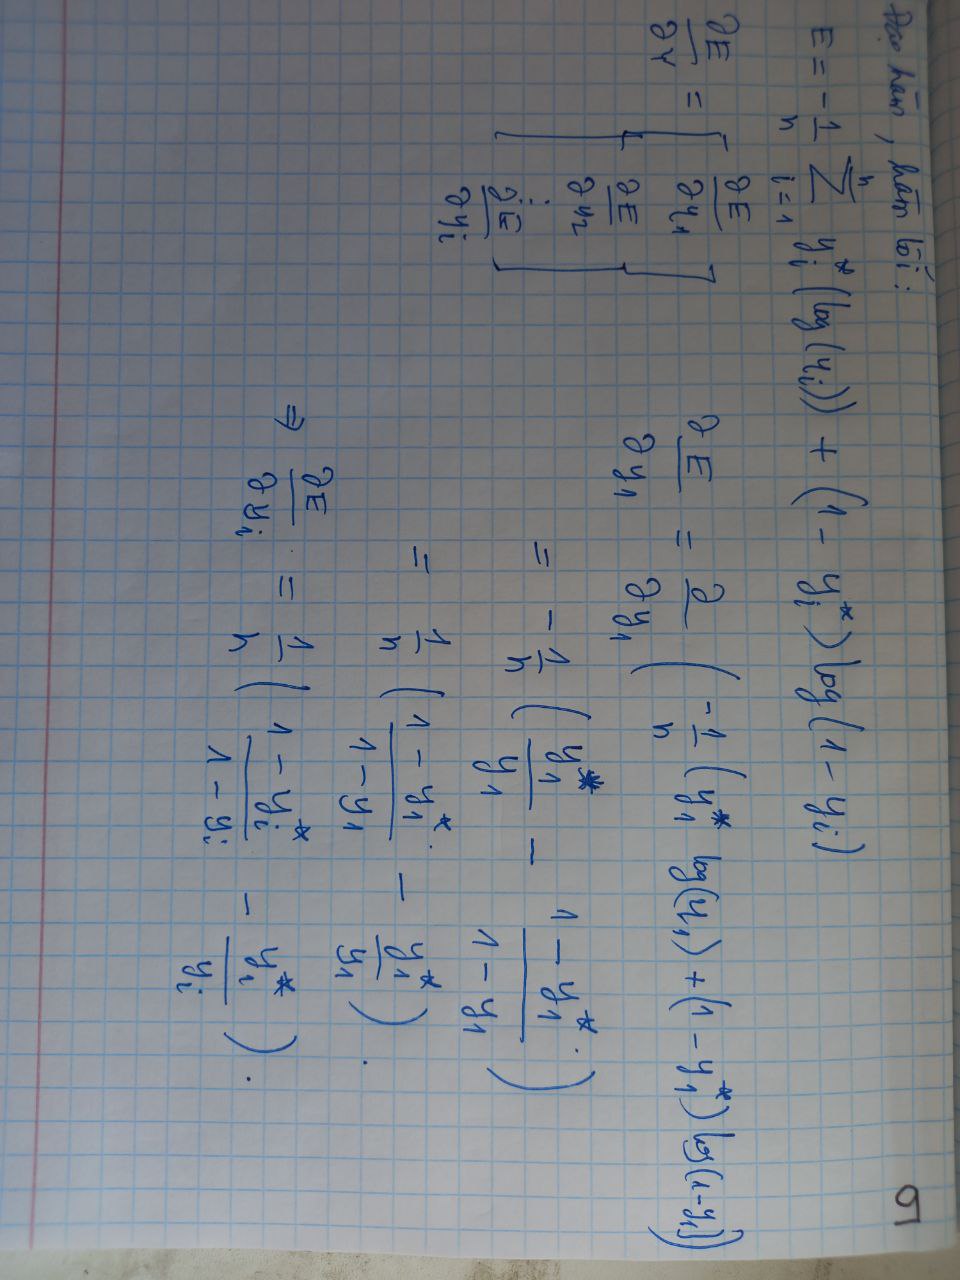 Đạo hàm, hàm lỗi:
6
E = -1/n Σ_{i=1}^{n} y_i^* (log(y_i)) + (1 - y_i^*) log(1 - y_i)
∂E/∂Y = [∂E/∂y_1 ∂E/∂y_2 ⋮ ∂E/∂y_i]
∂E/∂y_1 = ∂/∂y_1 (-1/n (y_1^* log(y_1) + (1 - y_1^*) log(1 - y_1)))
= -1/n (y_1^*/y_1 - (1 - y_1^*)/(1 - y_1))
= 1/n ((1 - y_1^*)/(1 - y_1) - y_1^*/y_1).
⇒ ∂E/∂y_i = 1/n ((1 - y_i^*)/(1 - y_i) - y_i^*/y_i).